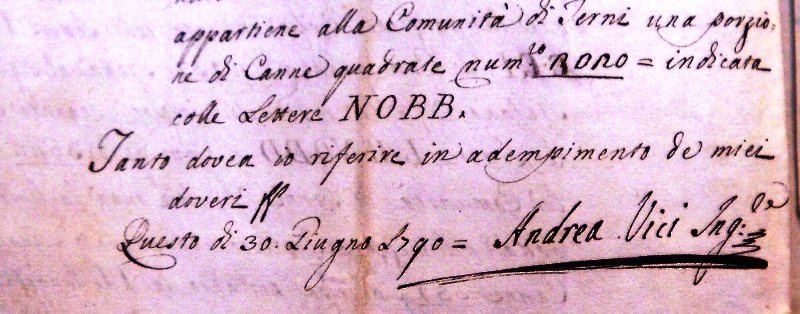 appartiene alla Comunità di Terni una porzio:
ne di Canne quadrate num.ro 2020 = indicata
colle Lettere NOBB.
Tanto dovea io riferire in adempimento de miei
doveri
Questo dì 30. Giugno 1790 = Andrea Vici Ing:re